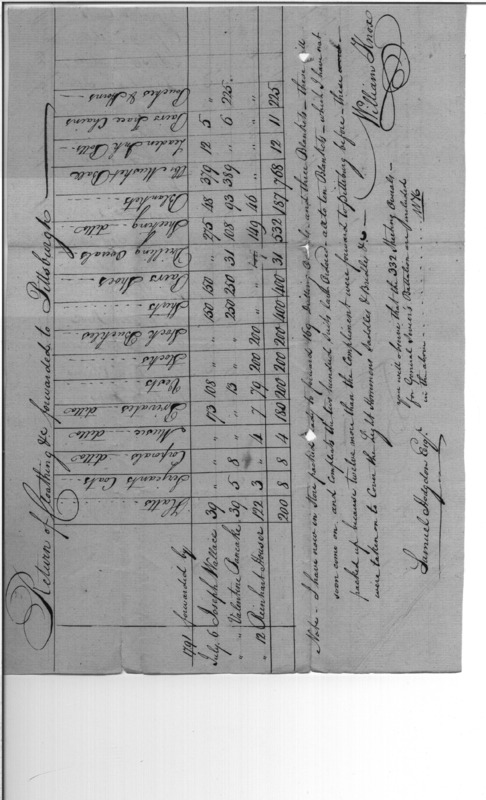 Return of Cloathing &c forwarded to Pittsburgh
1791 forwarded by Hatts Serjeants Coats Corporals ditto Music ditto Privates ditto Vests Stocks Stock Buckles Shirts Pairs Shoes Drilling Overalls Sheeting ditto Blankets lb Musket Balls Leaden Ink Potts Pairs Trace Chains Pouches & Horns
July 6 Joseph Wallace 39 " " " 173 108 " " 150 150 " 275 48 379 12 5 "
" " Valentine 39 5 8 " " 13 " " 250 250 31 108 93 389 " 6 225
" 12 Reinhart Houser 122 3 " 4 7 79 200 200 " " " 149 46 " " " "
200 8 8 4 180 200 200 200 400 400 31 532 187 768 12 11 225
Note – I have now in Store packed ready to forward 169 and three Blankets – these will
soon come on and Compleats the two hundred Suits each Ordered – except ten Blankets – which I have not
packed up because twelve more than the Compliment were forward to Pittsburg before – these
were taken on to Cover the eight Saddles & Bridles &c –
William Knox
you will observe that the 332 Sheeting Overalls –
for General Sevier's Battalion are included
in the above WK
Samuel Hodgdon Esqr.